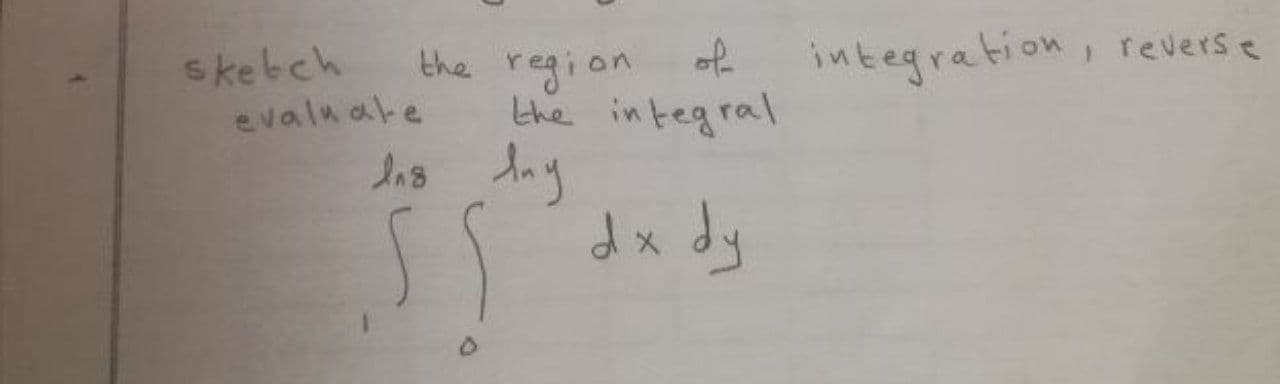 sketch the region of integration, reverse
evaluate the integral
ln8 lny
∫ ∫ dx dy
1 0